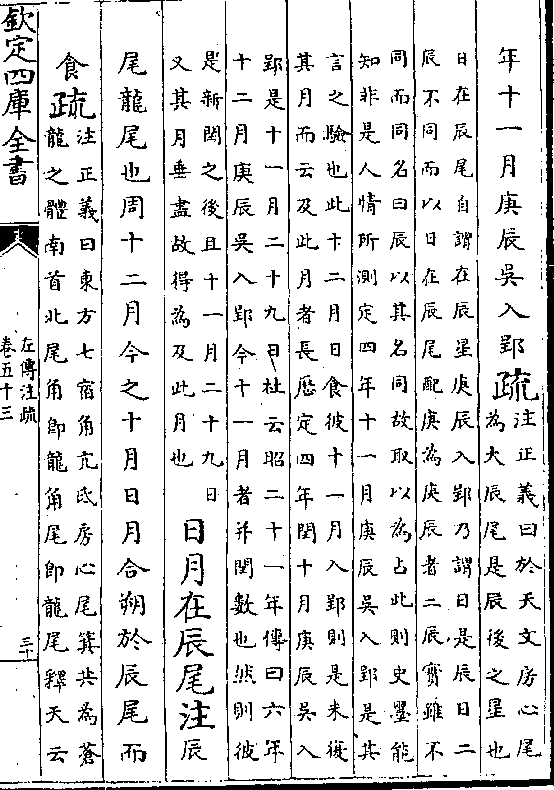 年十一月庚辰吳入郢疏注正義曰於天文房心尾
為大辰尾是辰後之星也
日在辰尾自謂在辰星庚辰入郢乃謂日是辰日二
辰不同而以日在辰尾配庚為庚辰者二辰實雖不
同而同名曰辰以其名同故取以為占此則史墨能
知非是人情所測定四年十一月庚辰吳入郢是其
言之驗也此十二月日食彼十一月入郢則是未復
其月而云及此月者長歷定四年閏十月庚辰吳入
郢是十一月二十九日杜云昭三十一年傳曰六年
十二月庚辰吳入郢今十一月者并閏數也然則彼
是新閏之後且十一月二十九日
又其月垂盡故得為及此月也
日月在辰尾注辰
尾龍尾也周十二月今之十月日月合朔於辰尾而
食疏注正義曰東方七宿角亢氐房心尾箕共為蒼
龍之體南首北尾角即龍角尾即龍尾釋天云
欽定四庫全書
左傳注疏
卷五十三
三十